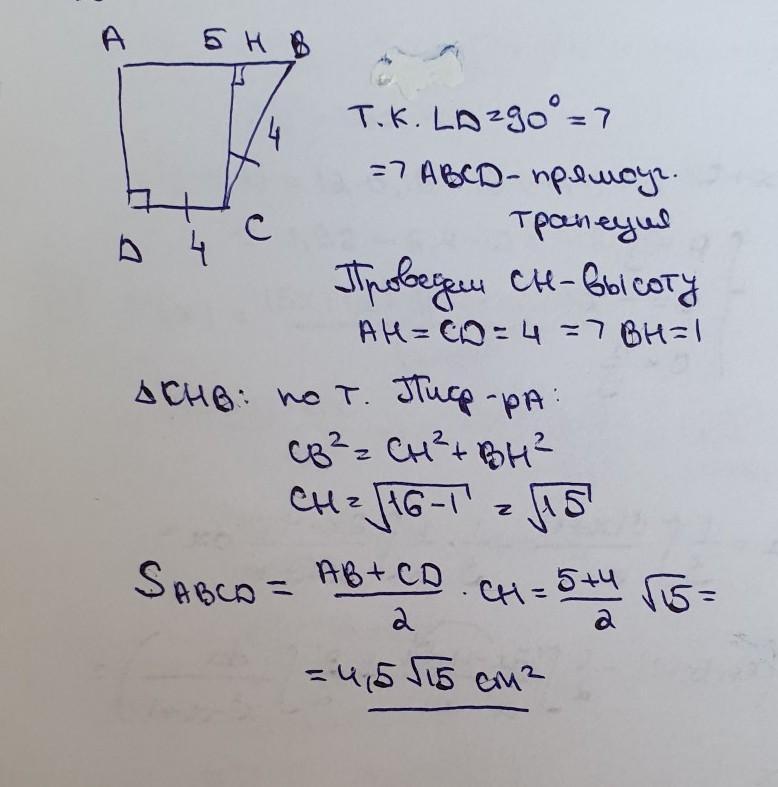 A 5 H B
4
D 4 C
Т.К. ∠D=90° =>
=> ABCD - прямоуг.
трапеция
Проведем CH - высоту
AH = CD = 4 => BH = 1
ΔCHB: по т. Пиф-рА:
CB² = CH² + BH²
CH = √16-1 = √15
S ABCD = AB + CD / 2 · CH = 5+4 / 2 √15 =
= 4,5 √15 см²